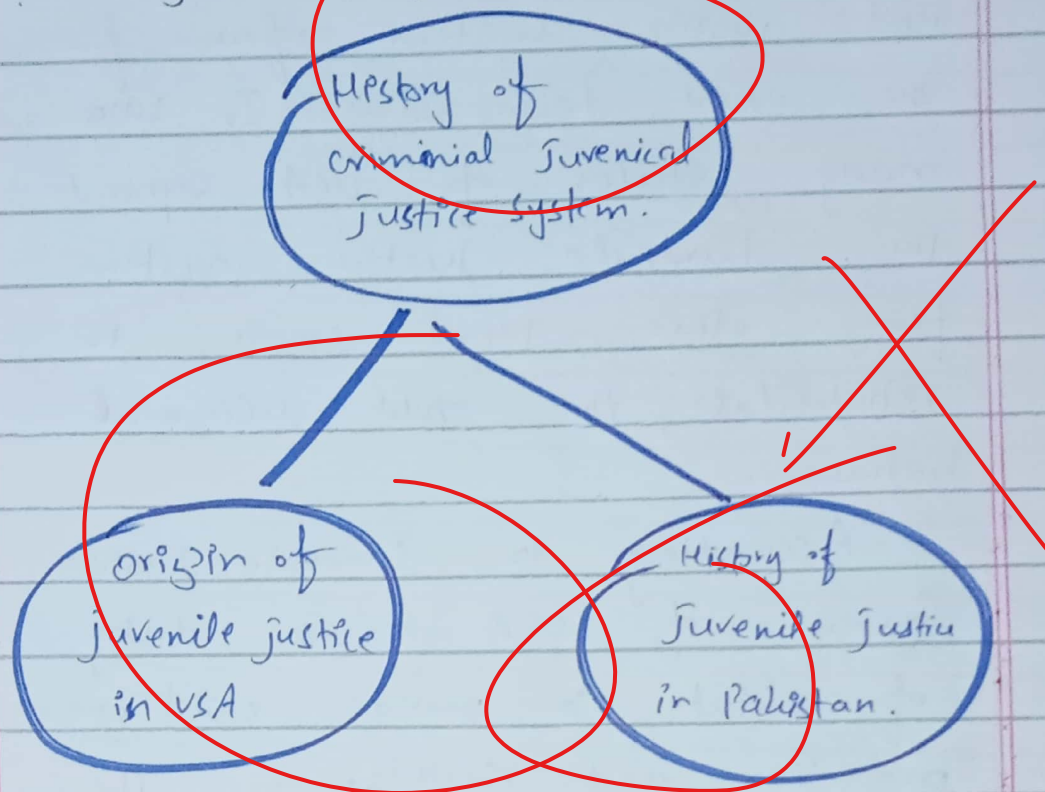 History of
criminial Juvenical
justice system.
origin of
juvenile justice
in USA
History of
Juvenile justice
in Pakistan.